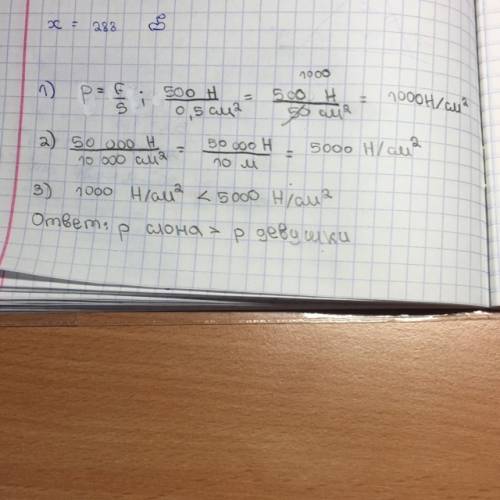 x = 283
1) p = F/S ; 500 Н / 0,5 см² = 1000 500 Н / 50 см² = 1000 Н/см²
2) 50 000 Н / 10 000 см² = 50 000 Н / 10 м = 5000 Н/см²
3) 1000 Н/см² < 5000 Н/см²
Ответ: p слона > p девушки